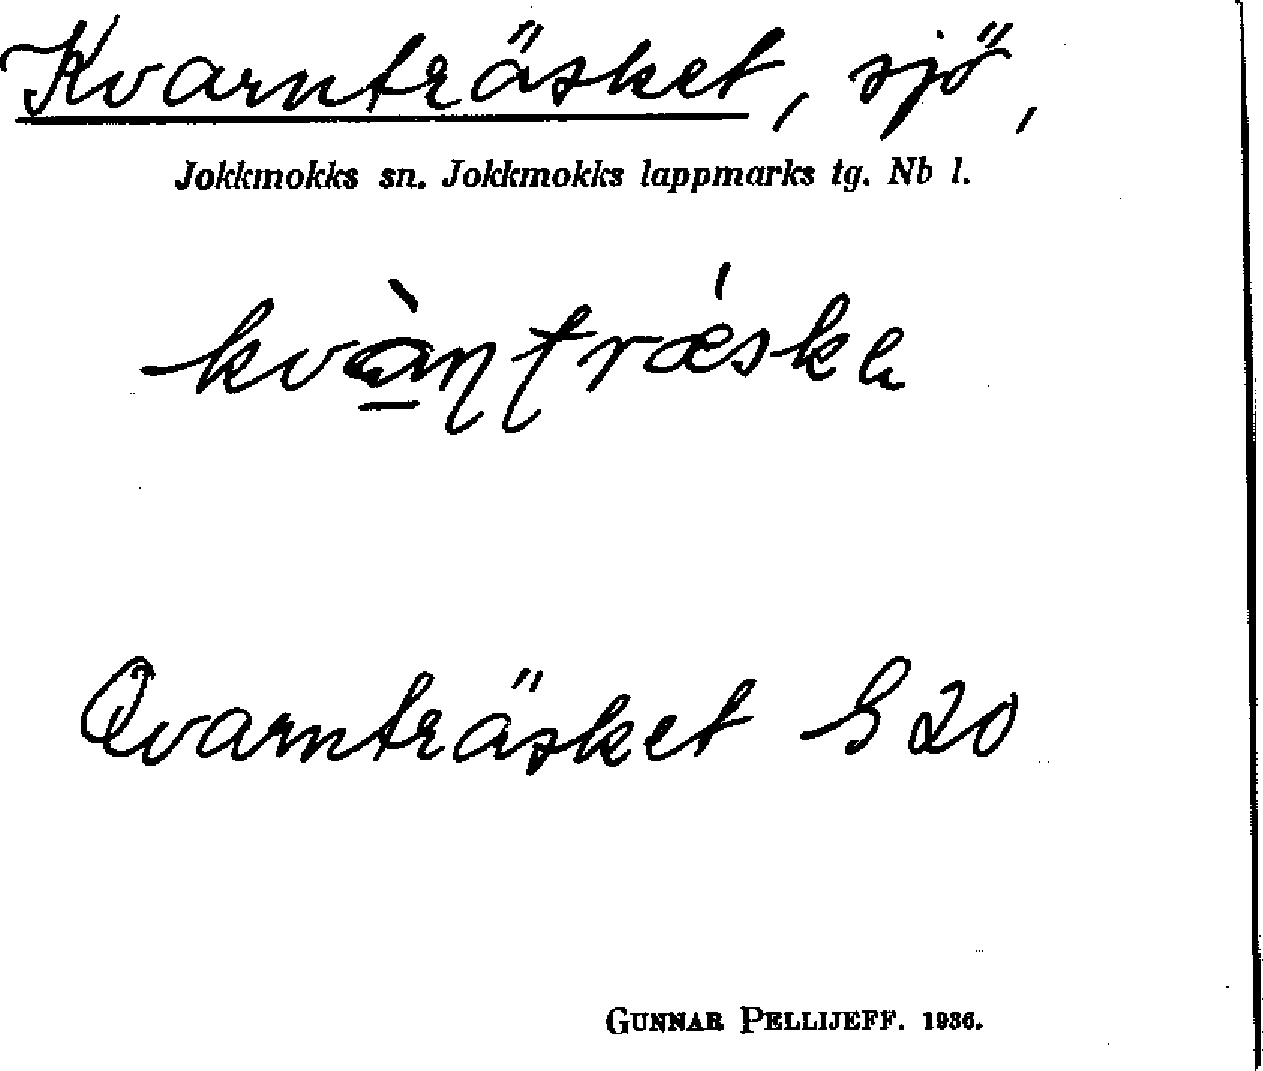 Kvarnträsket, sjö,
Jokkmokks sn. Jokkmokks lappmarks tg. Nb l.
Qvarnträsket S 20
GUNNAR PELLIJEFF. 1936.